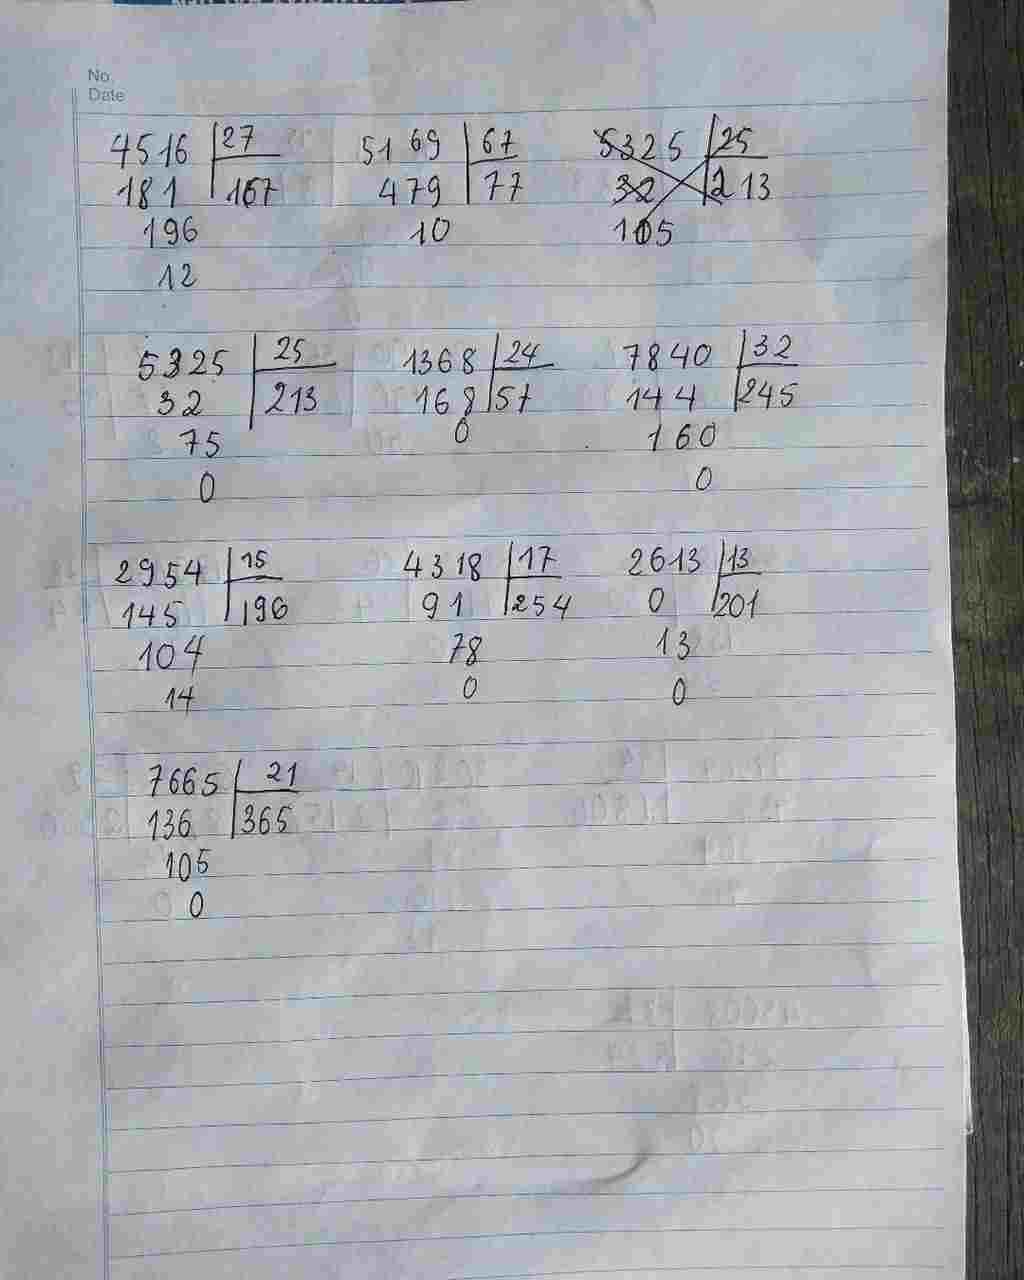 No.
Date
4516 27 5169 67 5325 25
181 167 479 77 32 213
196 10 105
12
5325 25 1368 24 7840 32
32 213 168 57 144 245
75 0 160
0 0
2954 15 4318 17 2613 13
145 196 91 254 0 201
104 78 13
14 0 0
7665 21
136 365
105
0